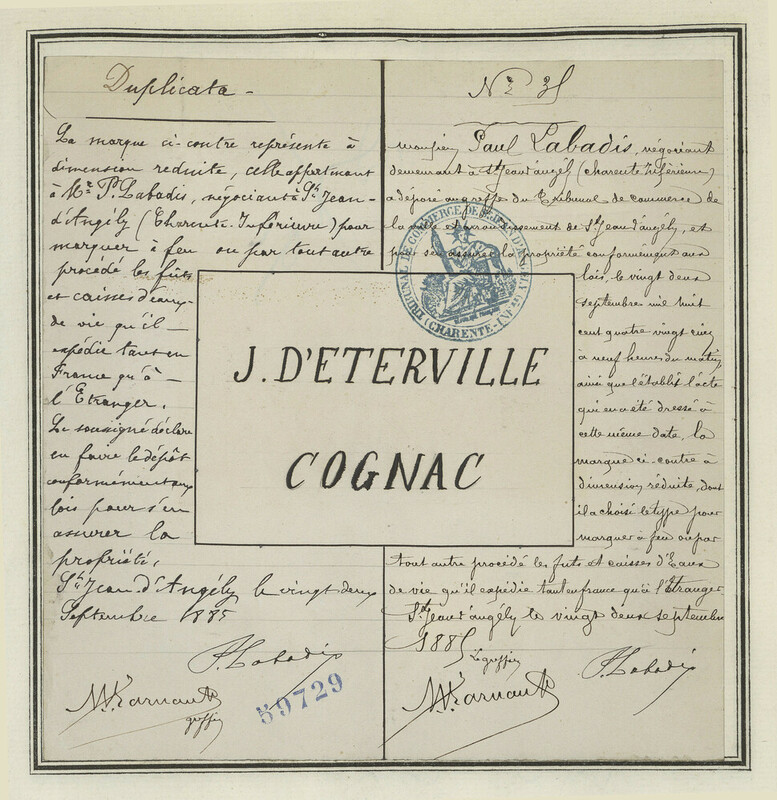 Duplicata -
La marque ci-contre représente à
dimension reduite, celle appartenant
à Mr. P. Labadis, négociant à St. Jean-
d'Angély (Charente-Inférieure) pour
marquer à feu ou par tout autre
procédé les futs
et caisses d'eaux-
de vie qu'il -
expédie tant en
France qu'à -
l'Etranger.
Le soussigné déclare
en faire le dépôt
conformément aux
lois pour s'en
assurer la
propriété.
St. Jean d'Angély le vingt-deux
Septembre 1885
P. Labadis
greffier
59729
J. D'ETERVILLE
COGNAC
TRIBUNAL DE COMMERCE DE St JEAN D'ANGELY
(CHARENTE-INFre)
monsieur Paul Labadis, négociant
demeurant à St Jean d'angély (charente Inférieure)
a déposé au greffe du Tribunal de commerce de
la ville et arrondissement de St Jean d'angély, et
pour s'en assurer la propriété conformément aux
lois, le vingt deux
septembre mil huit
cent quatre vingt cinq
à neuf heures du matin
ainsi que l'établit l'acte
qui en a été dressé à
cette même date, la
marque ci-contre à
dimension réduite, dont
il a choisi le type pour
marquer à feu ou par
tout autre procédé les futs et caisses d'Eaux
de vie qu'il expédie tant en france qu'à l'Etranger
St Jean d'angély le vingt deux septembre
1885
Le greffier
P. Labadis